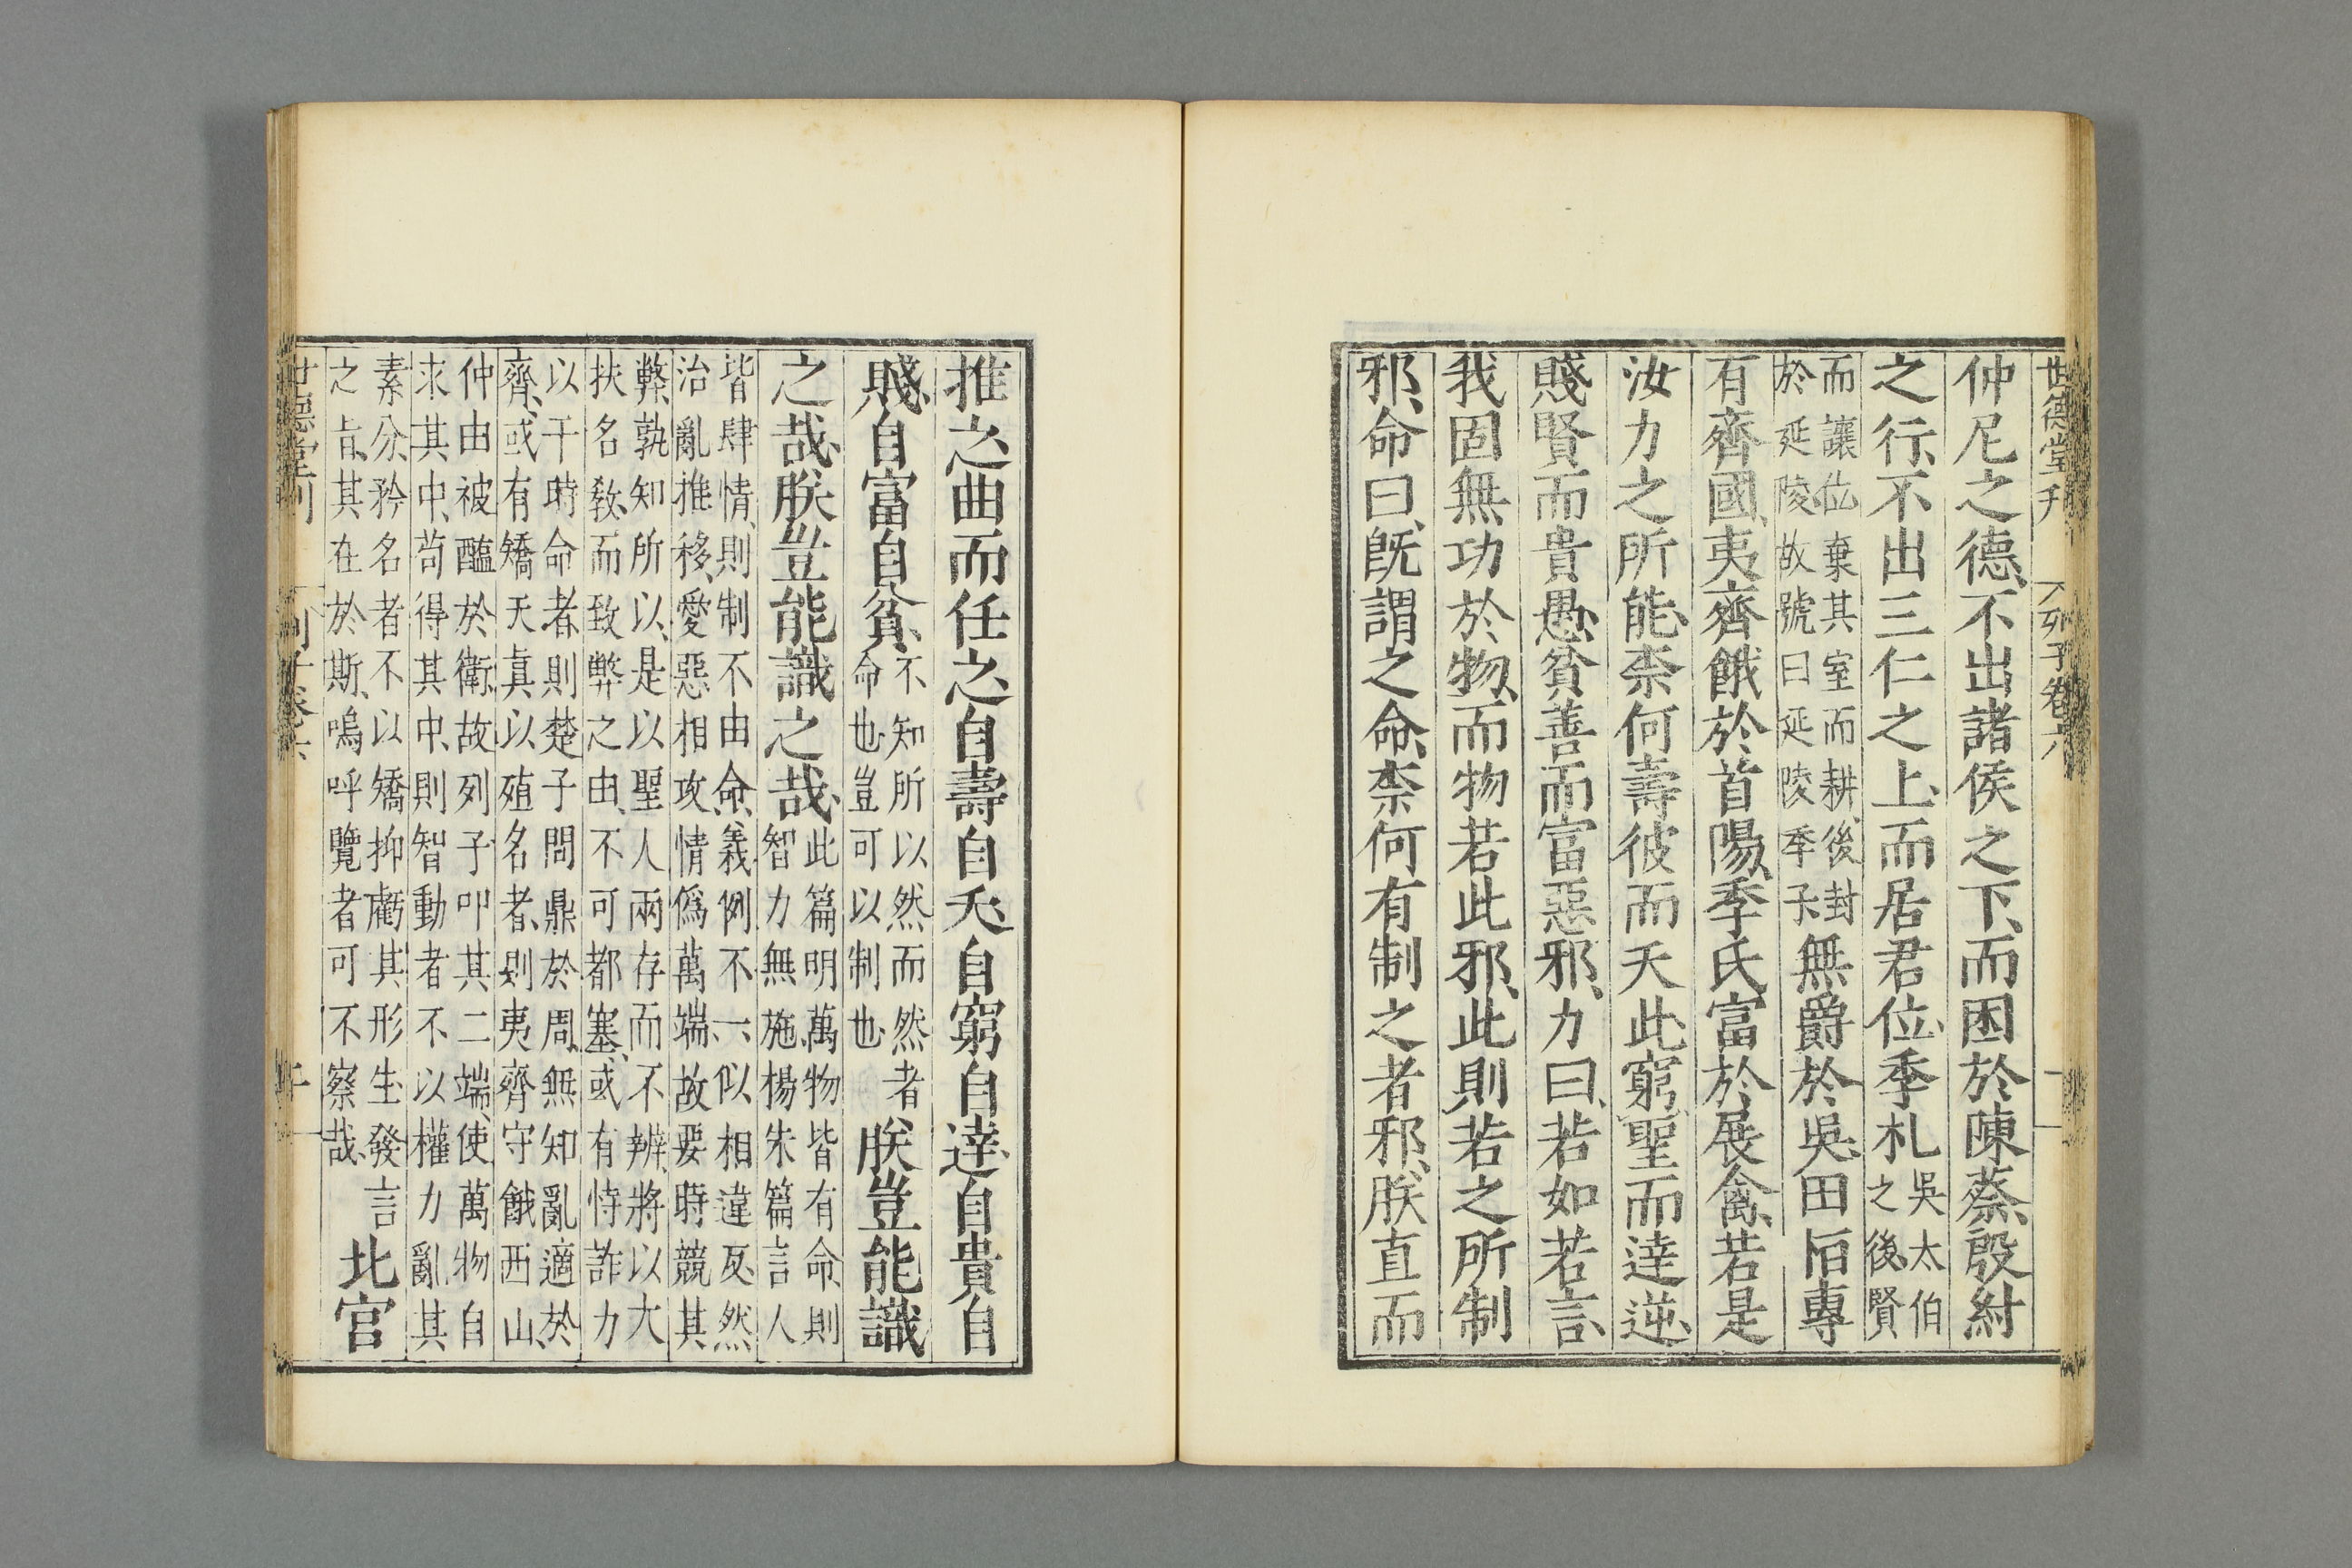 世德堂刊　列子卷六　一
仲尼之德、不出諸侯之下、而困於陳蔡、殷紂
之行、不出三仁之上、而居君位、季札吳太伯之後、賢
而讓位棄其室而耕、後封於延陵、故號曰延陵季子、無爵於吳、田恒專
有齊國、夷齊餓於首陽、季氏富於展禽、若是
汝力之所能、柰何壽彼而夭此、窮聖而達逆、
賤賢而貴愚、貧善而富惡邪、力曰、若如若言、
我固無功於物、而物若此邪、此則若之所制
邪、命曰、旣謂之命、柰何有制之者邪、朕直而
推之、曲而任之、自壽自夭、自窮自達、自貴自
賤、自富自貧、不知所以然而然者命也、豈可以制也、朕豈能識
之哉、朕豈能識之哉、此篇明萬物皆有命、則智力無施、楊朱篇言人
皆肆情、則制不由命、義例不一、似相違反、然治亂推移、愛惡相攻、情僞萬端、故要時競其
弊、孰知所以、是以聖人兩存而不辨、將以大扶名敎、而致弊之由、不可都塞、或有恃詐力
以干時命者、則楚子問鼎於周、無知亂適於齊、或有矯天真以殖名者、則夷齊守餓西山、
仲由被醢於衛、故列子叩其二端、使萬物自求其中、苟得其中、則智動者不以權力亂其
素分、矜名者不以矯抑虧其形生、發言之旨、其在於斯、嗚呼覽者可不察哉、北宮
世德堂刊　列子卷六